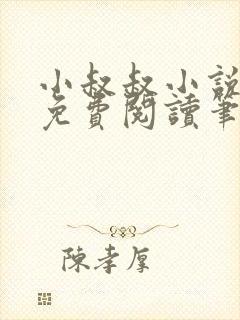 小叔叔小說
免費閱讀筆
陳孝厚